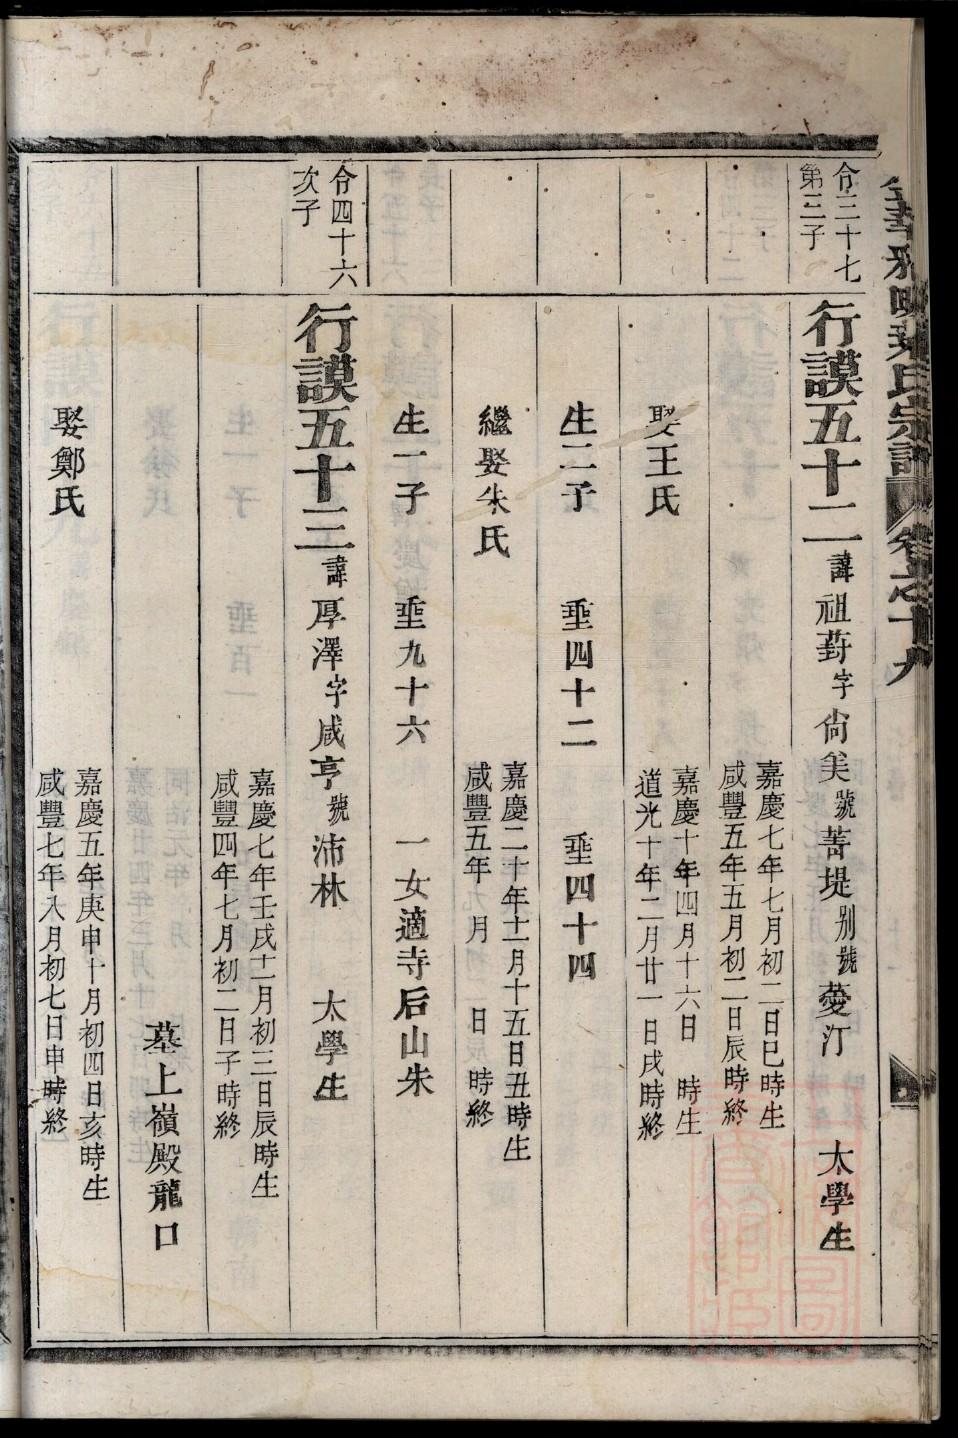 令三十七
第三子
行謨五十二諱祖葑字尙美號菁堤别號薆汀 太學生
嘉慶七年七月初二日巳時生
咸豐五年五月初二日辰時終
娶王氏
嘉慶十年四月十六日 時生
道光十年二月廿一日戌時終
生二子 垂四十二 垂四十四
繼娶朱氏
嘉慶二十年十一月十五日丑時生
咸豐五年 月 日 時終
生一子 垂九十六 一女適寺后山朱
令四十六
次子
行謨五十三諱厚澤字咸亨號沛林 太學生
嘉慶七年壬戌十一月初三日辰時生
咸豐四年七月初二日子時終
墓上嶺殿龍口
娶鄭氏
嘉慶五年庚申十月初四日亥時生
咸豐七年八月初七日申時終